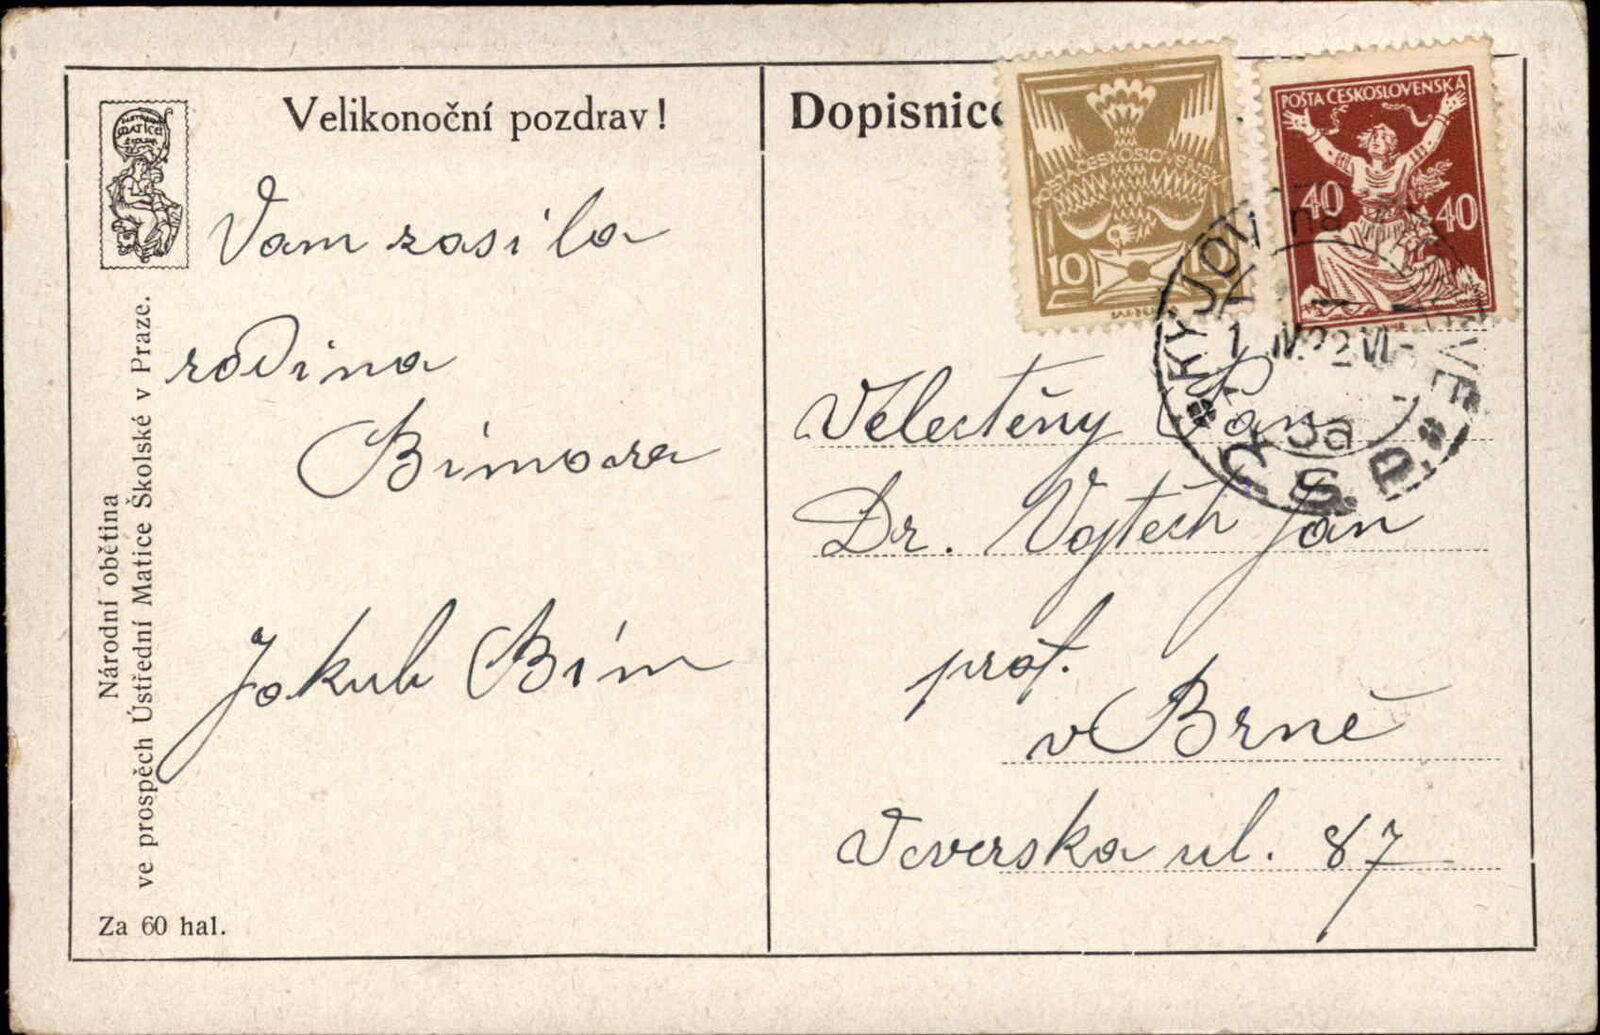 Velikonoční pozdrav!
Vam zasila
rodina
Bimova
Jakub Bím
Národní obětina
ve prospěch Ústřední Matice Školské v Praze.
Za 60 hal.
Dopisnice
POŠTA ČESKOSLOVENSKÁ
10 10
POŠTA ČESKOSLOVENSKÁ
40 40
KYJOV na MORAVĚ
1 IV 22 VI
3a
Velectěny Pan
Dr. Vojtěch Jan
prof.
v Brně
Veverska ul. 87